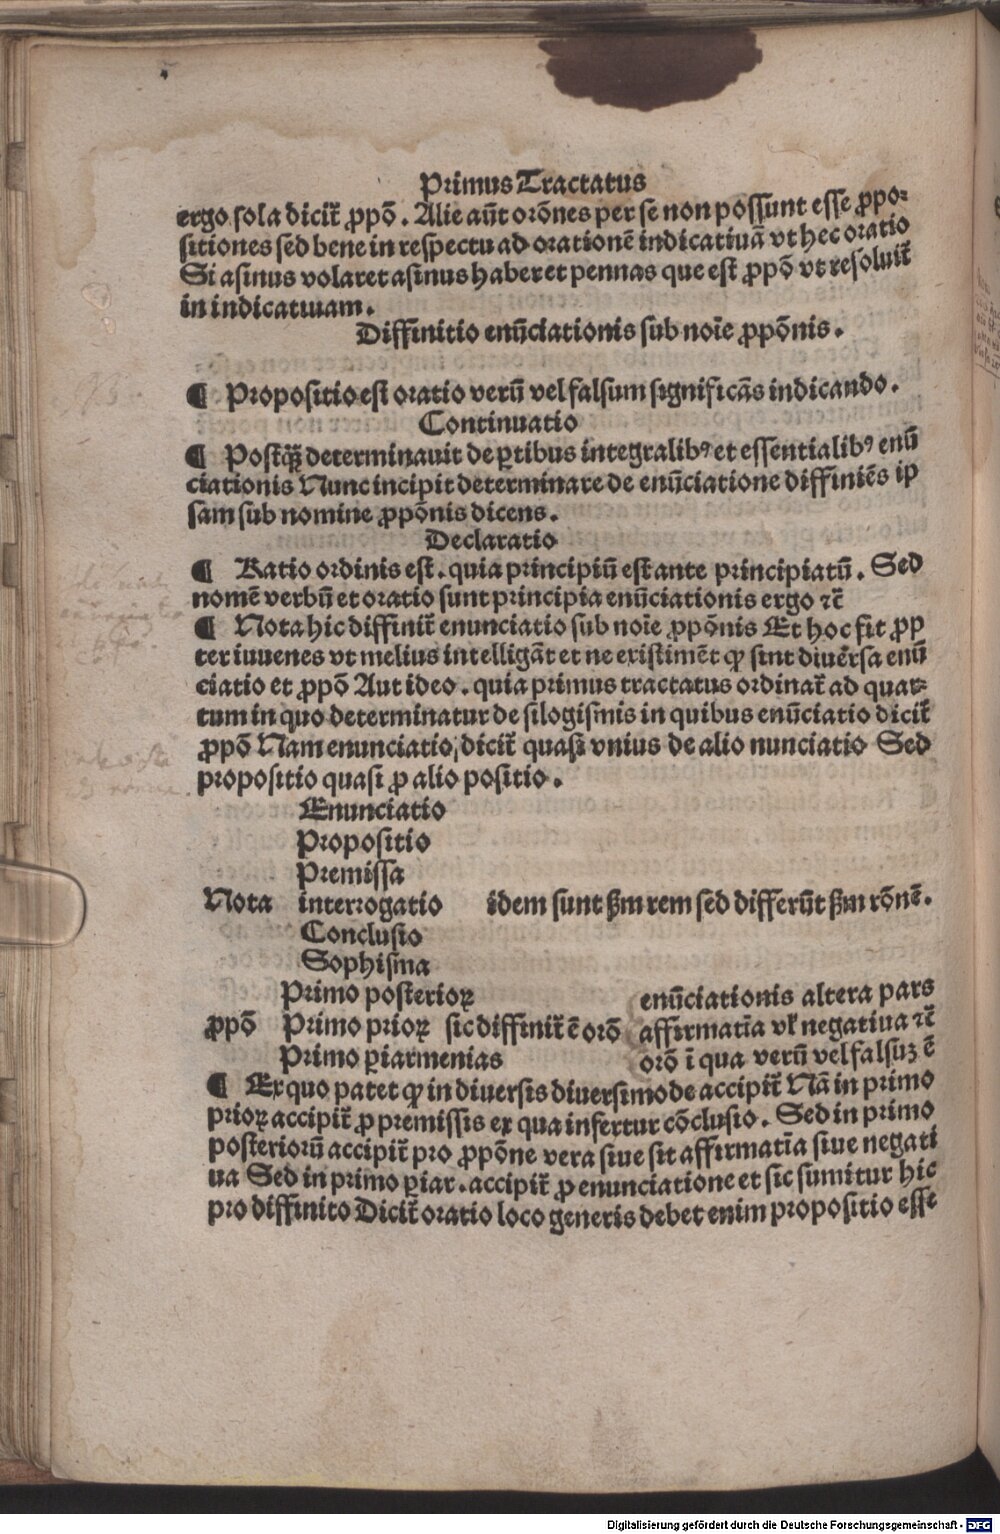 Primus Tractatus
ergo sola dicit᷑ ꝓpõ. Alie aũt orõnes per se non possunt esse ꝓpo⸗
sitiones sed bene in respectu ad orationẽ indicatiuã vt hec oratio
Si asinus volaret asinus haberet pennas que est ꝓpõ vt resoluit᷑
in indicatiuam.
Diffinitio enũciationis sub noĩe ꝓpõnis.
¶ Propositio est oratio verũ vel falsum significãs indicando.
Continuatio
¶ Postꝙ̃ determinauit de ꝑtibus integralibꝰ et essentialibꝰ enũ
ciationis Nunc incipit determinare de enũciatione diffiniẽs ip
sam sub nomine ꝓpõnis dicens.
Declaratio
¶ Ratio ordinis est. quia principiũ est ante principiatũ. Sed
nomẽ verbũ et oratio sunt principia enũciationis ergo ⁊c̃
¶ Nota hic diffinit᷑ enunciatio sub noĩe ꝓpõnis Et hoc fit ꝓp
ter iuuenes vt melius intelligãt et ne existimẽt ꝙ sint diuẽrsa enũ
ciatio et ꝓpõ Aut ideo. quia primus tractatus ordinat᷑ ad quar⸗
tum in quo determinatur de silogismis in quibus enũciatio dicit᷑
ꝓpõ Nam enunciatio dicit᷑ quasi vnius de alio nunciatio Sed
propositio quasi ꝓ alio positio.
Enunciatio
Propositio
Premissa
Nota interrogatio idem sunt ẜm rem sed differũt ẜm rõnẽ.
Conclusio
Sophisma
Primo posterioꝝ enũciationis altera pars
ꝓpõ Primo prioꝝ sic diffinit᷑ ẽ orõ affirmatĩa vl̃ negatiua ⁊c̃
Primo ꝑiarmenias orõ ĩ qua verũ vel falsuꝫ ẽ
¶ Ex quo patet ꝙ in diuersis diuersimode accipit᷑ Nã in primo
prioꝝ accipit᷑ ꝓ premissis ex qua infertur cõclusio. Sed in primo
posteriorũ accipit᷑ pro ꝓpõne vera siue sit affirmatĩa siue negati
ua Sed in primo ꝑiar. accipit᷑ ꝓ enunciatione et sic sumitur hic
pro diffinito Dicit᷑ oratio loco generis debet enim propositio esse
Digitalisierung gefördert durch die Deutsche Forschungsgemeinschaft - DFG